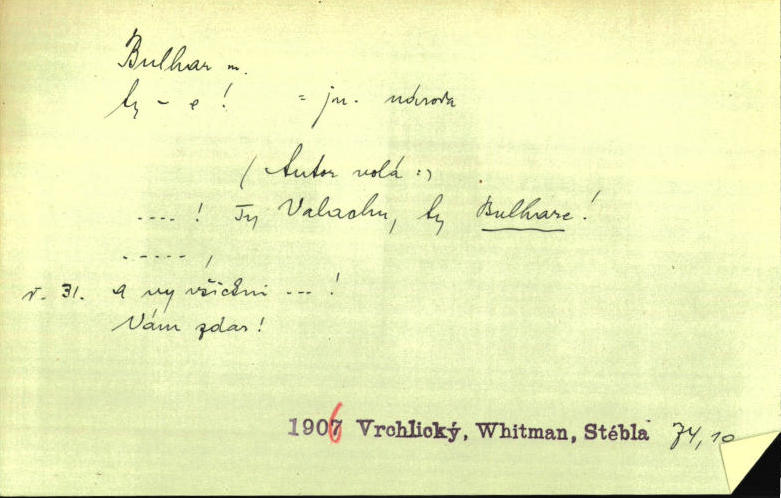 Bulhar m.
ty - e! = jm. národa
(Autor volá:)
....! Ty Valachu, ty Bulhare!
.....,
v. 31. a vy všickni ...!
Vám zdar!
1906 Vrchlický, Whitman, Stébla 74,10